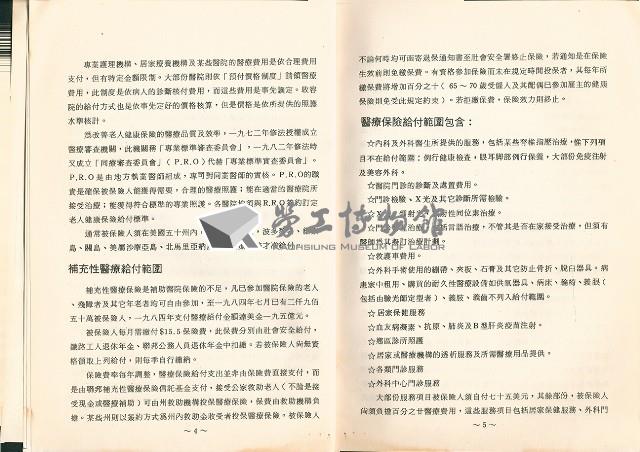 專業護理機構、居家療養機構及某些醫院的醫療費用是依合理費用
支付，但有特定金額限制。大部份醫院則依「預付價格制度」請領醫療
費用，此制度是依病人的診斷核付費用，而這些費用是事先議定。救容
院的給付方式也是依事先定好的價格核算，但是價格是依所提供的照護
水準核計。
為改善老人健康保險的醫療品質及效率，一九七二年修法授權成立
醫療審查機關，此機關稱「專業標準審查委員會」，一九八二年修法時
又成立「同療審查委員會」（P.R.O）代替「專業標準審查委員會」。
P.R.O是由地方執業醫師組成，專司對同業醫師的審核。P.R.O的職
責是確保被保險人能獲得需要，合理的醫療照護；能在適當的醫療院所
接受治療；能獲得符合標準的專業照護。各醫院
老人健康保險給付標準。
通常被保險人須在美國五十州內
島、關島、美屬沙摩亞島、北馬里亞納
補充性醫療給付範圍
補充性醫療保險是補助醫院保險的不足，凡已參加醫院保險的老人
、殘障者及其它年老者均可自由參加，至一九八四年七月已有二仟九佰
五十萬被保險人，一九八四年支付醫療給付金額達美金一九五億元。
被保險人每月需繳付$15.5保險費，此保費分別由社會安全給付，
鐵路工人退休年金、聯邦公務人員退休年金中扣繳。若被保險人尚無資
格領取上列給付，則每季自行繳納。
保險費率每年調整，醫療保險給付支出並非由保險費直接支付，而
是由聯邦補充性醫療保險信託基金支付，接受公家救助老人（不論是接
受現金或醫療補助）可由州救助機構投保醫療保險，保費由救助機構負
擔。某些州則以簽約方式為州內救助金收受者投保醫療保險。被保險人
～4～
不論何時均可函寄退保通知書至社會安全署終止保險，若通知是在保險
生效前則免繳保費。有資格參加保險而未在規定時間投保者，其每年所
繳保費將增加百分之十（65～70歲受僱人及其配偶已參加雇主的健康
保險則免受此規定約束）。若拒繳保費，保險效力則終止。
醫療保險給付範圍包含：
☆內科及外科醫生所提供的服務，包括某些脊椎指壓治療，惟下列項
目不在給付範圍：例行健康檢查，眼耳腳部例行保養，大部份免疫注射
及美容外科。
☆醫院門診的診斷及處置費用。
☆門診檢驗、X光及其它診斷所需檢驗。
☆
☆門 言語治療，不管其是否在家接受治療，但須有
醫師為其擬訂治療計劃。
☆救護車費用。
☆外科手術使用的繃帶、夾板、石膏及其它防止骨折、脫臼器具。病
患家中租用、購買的耐久性醫療設備如供氧器具、病床、輪椅、義眼（
包括由驗光師定型者）、義肢、義齒不列入給付範圍。
☆居家保健服務
☆血友病凝素、抗原、肺炎及B型肝炎疫苗注射。
☆鄉區診所照護
☆居家或醫療機構的透析服務及所需醫療用品提供。
☆各類門診服務
☆外科中心門診服務
大部份服務項目被保險人須自付七十五美元，其餘部份，被保險人
尚須負擔百分之廿醫療費用，這些服務項目包括居家保健服務、外科門
～5～
勞工博物館
KAOHSIUNG MUSEUM OF LABOR